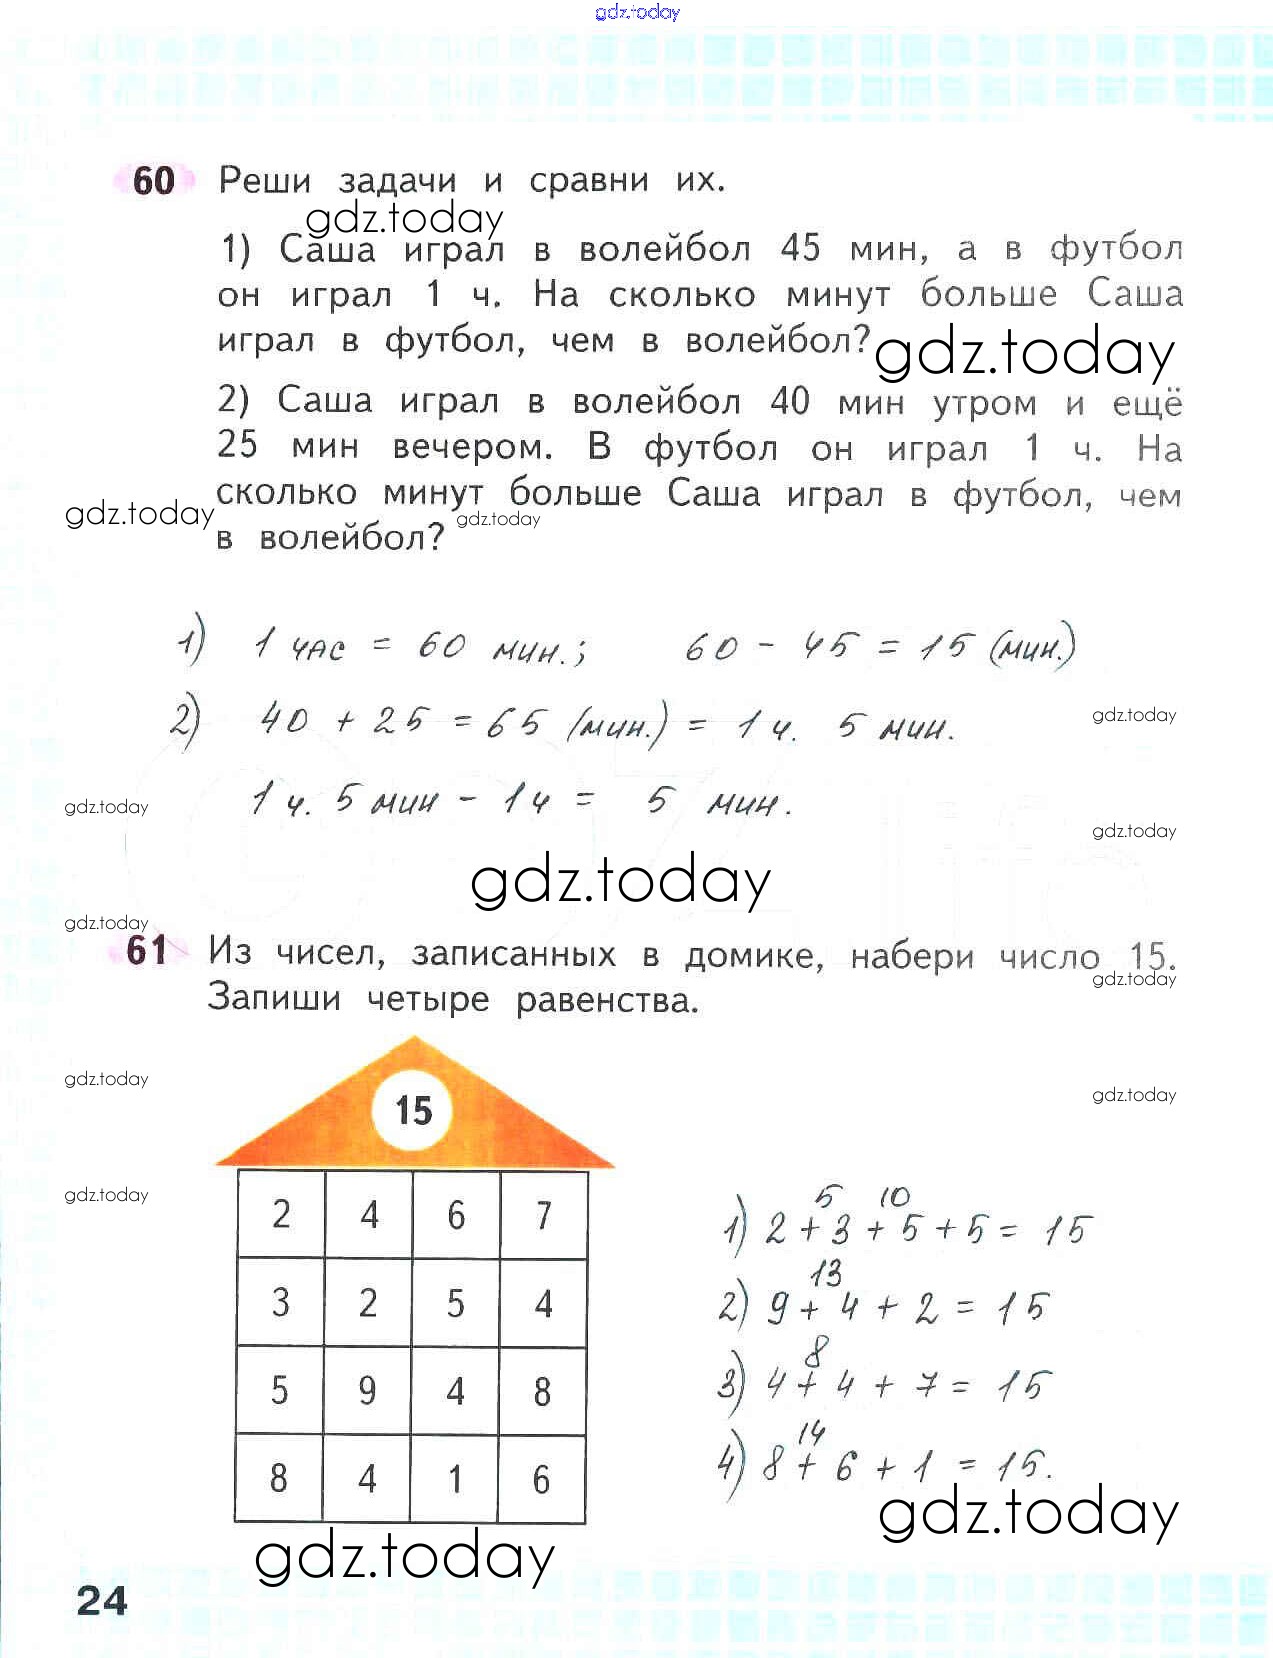 gdz.today
60 Реши задачи и сравни их.
gdz.today
1) Саша играл в волейбол 45 мин, а в футбол
он играл 1 ч. На сколько минут больше Саша
играл в футбол, чем в волейбол?
gdz.today
2) Саша играл в волейбол 40 мин утром и ещё
25 мин вечером. В футбол он играл 1 ч. На
сколько минут больше Саша играл в футбол, чем
gdz.today gdz.today
в волейбол?
1) 1 час = 60 мин.; 60 - 45 = 15 (мин.)
2) 40 + 25 = 65 (мин.) = 1 ч. 5 мин.
gdz.today
1 ч. 5 мин - 1 ч = 5 мин.
gdz.today
gdz.today
gdz.today
gdz.today
61 Из чисел, записанных в домике, набери число 15.
gdz.today
Запиши четыре равенства.
gdz.today
gdz.today
15
gdz.today
2 4 6 7
3 2 5 4
5 9 4 8
8 4 1 6
5 10
1) 2 + 3 + 5 + 5 = 15
13
2) 9 + 4 + 2 = 15
8
3) 4 + 4 + 7 = 15
14
4) 8 + 6 + 1 = 15.
gdz.today
gdz.today
24